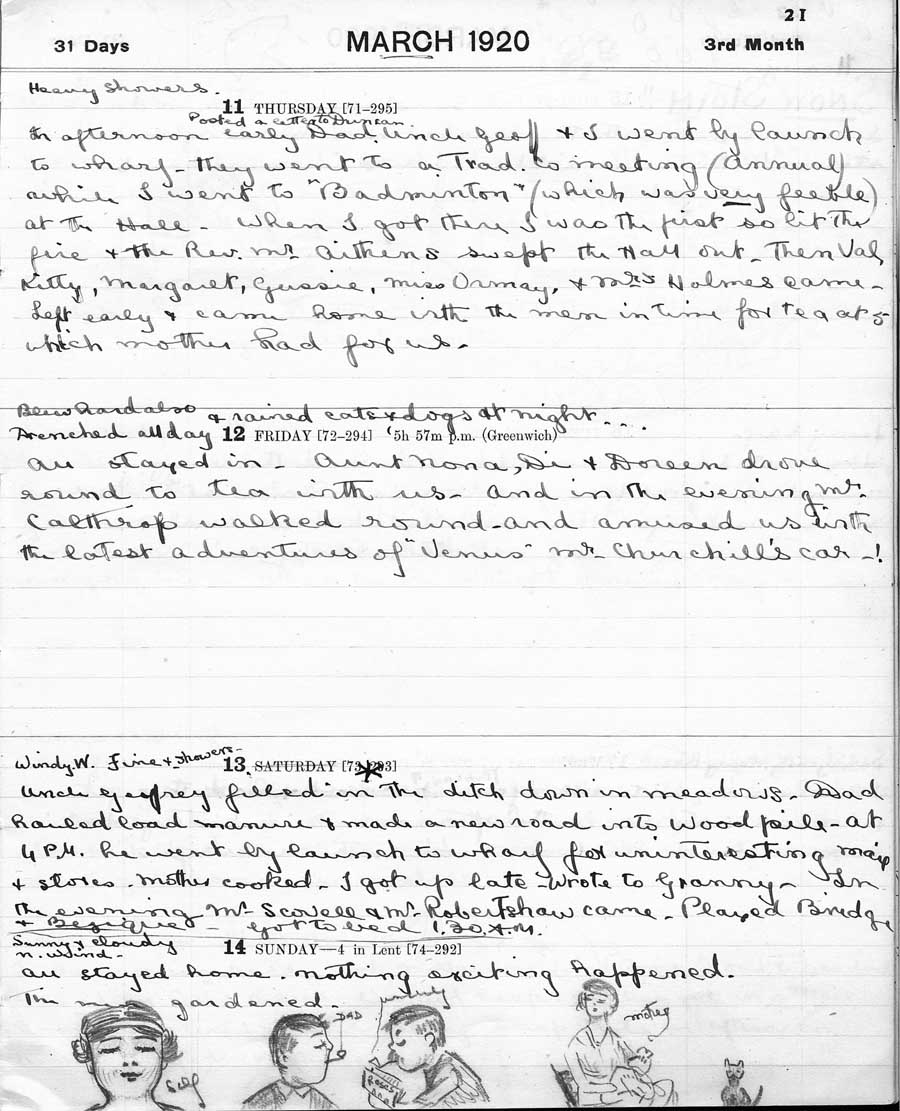 21
31 Days MARCH 1920 3rd Month
Heavy showers.
11 THURSDAY [71-295]
Posted a letter to Duncan.
In afternoon early Dad, Uncle Geoff & I went by launch
to wharf - they went to a Trad. Co meeting (Annual)
while I went to "Badminton" (which was very feeble)
at the Hall - When I got there I was the first so lit the
fire & the Rev. Mr Aitkens swept the Hall out - Then Val,
Kitty, Margaret, Gussie, Miss Ormay, & Mrs Holmes came -
Left early & came home with the men in time for tea at 5
which mother had for us -
Blew hard also & rained cats & dogs at night . . .
Drenched all day 12 FRIDAY [72-294] 5h 57m p.m. (Greenwich)
All stayed in - Aunt Nona, Di & Doreen drove
round to tea with us - And in the evening Mr.
Calthrop walked round - and amused us with
the latest adventures of "Venus" Mr Churchill's car - !
Windy. W. Fine & showers -
13 SATURDAY [73-293]
Uncle Geoffrey filled in the ditch down in meadows - Dad
hauled load manure & made a new road into Wood pile - at
4 P.M. he went by launch to wharf for uninteresting mail
& stores. Mother cooked - I got up late - wrote to Granny - In
the evening Mr Scovell & Mr Robertshaw came - Played Bridge
& Bezique - got to bed 1.30. A.M.
Sunny & cloudy
N. Wind - 14 SUNDAY—4 in Lent [74-292]
All stayed home. Nothing exciting happened.
The men gardened -
Self
DAD
Mother